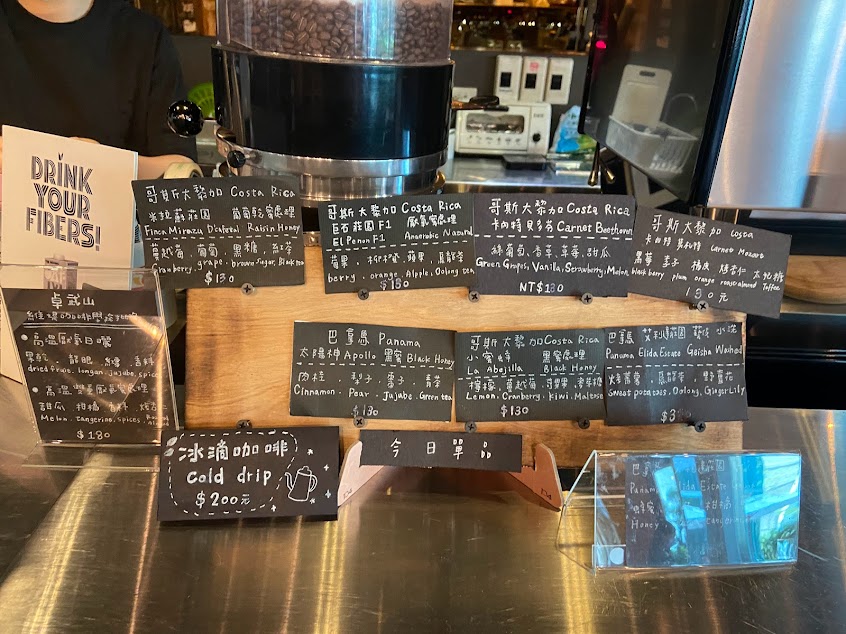 DRINK
YOUR
FIBERS!
哥斯大黎加 Costa Rica
米拉蘇莊園 葡萄乾蜜處理
Finca Mirazu Raisin Honey
蔓越莓、葡萄、黑糖、紅茶
Cranberry, grape, brown sugar, Black tea
$130
哥斯大黎加 Costa Rica
巨石莊園 F1 厭氧蜜處理
El Penon F1 Anaerobic Natural
莓果、柳橙、蘋果、烏龍茶
berry, orange, Alpple, Oolong tea
$130
哥斯大黎加 Costa Rica
卡内特貝多芬 Carnet Beethoven
綠葡萄、香草、草莓、甜瓜
Green Grapes, Vanilla, Strawberry, Melon
NT$180
哥斯大黎加 Costa
卡内特莫札特 Carnet Mozart
黑莓 李子 橘皮 烤杏仁 太妃糖
blackberry plum orange Toffee
190元
卓武山
高溫厭氧日曬
果乾、龍眼、棗、香料
dried fruit, longan, jujube, spice
高溫雙重厭氧蜜處理
Melon, tangerine, spices
$180
巴拿馬 Panama
太陽神 Apollo 黑蜜 Black Honey
肉桂、梨子、棗子、青茶
Cinnamon, Pear, Jujube, Green tea
$130
哥斯大黎加 Costa Rica
小蜜蜂 黑蜜處理
La Abejilla Black Honey
檸檬、蔓越莓、奇異果、麥芽糖
Lemon, Cranberry, Kiwi, Maltose
$130
巴拿馬 艾利達莊園 藝伎 水洗
Panama Elida Escate Geisha Washed
烤蕃薯、烏龍茶、野薑花
Sweet potatoes, Oolong, Ginger Lily
冰滴咖啡
Cold drip
$200元
今日單品
巴拿馬
Panama Elida Escate
柑橘
Honey tangerine